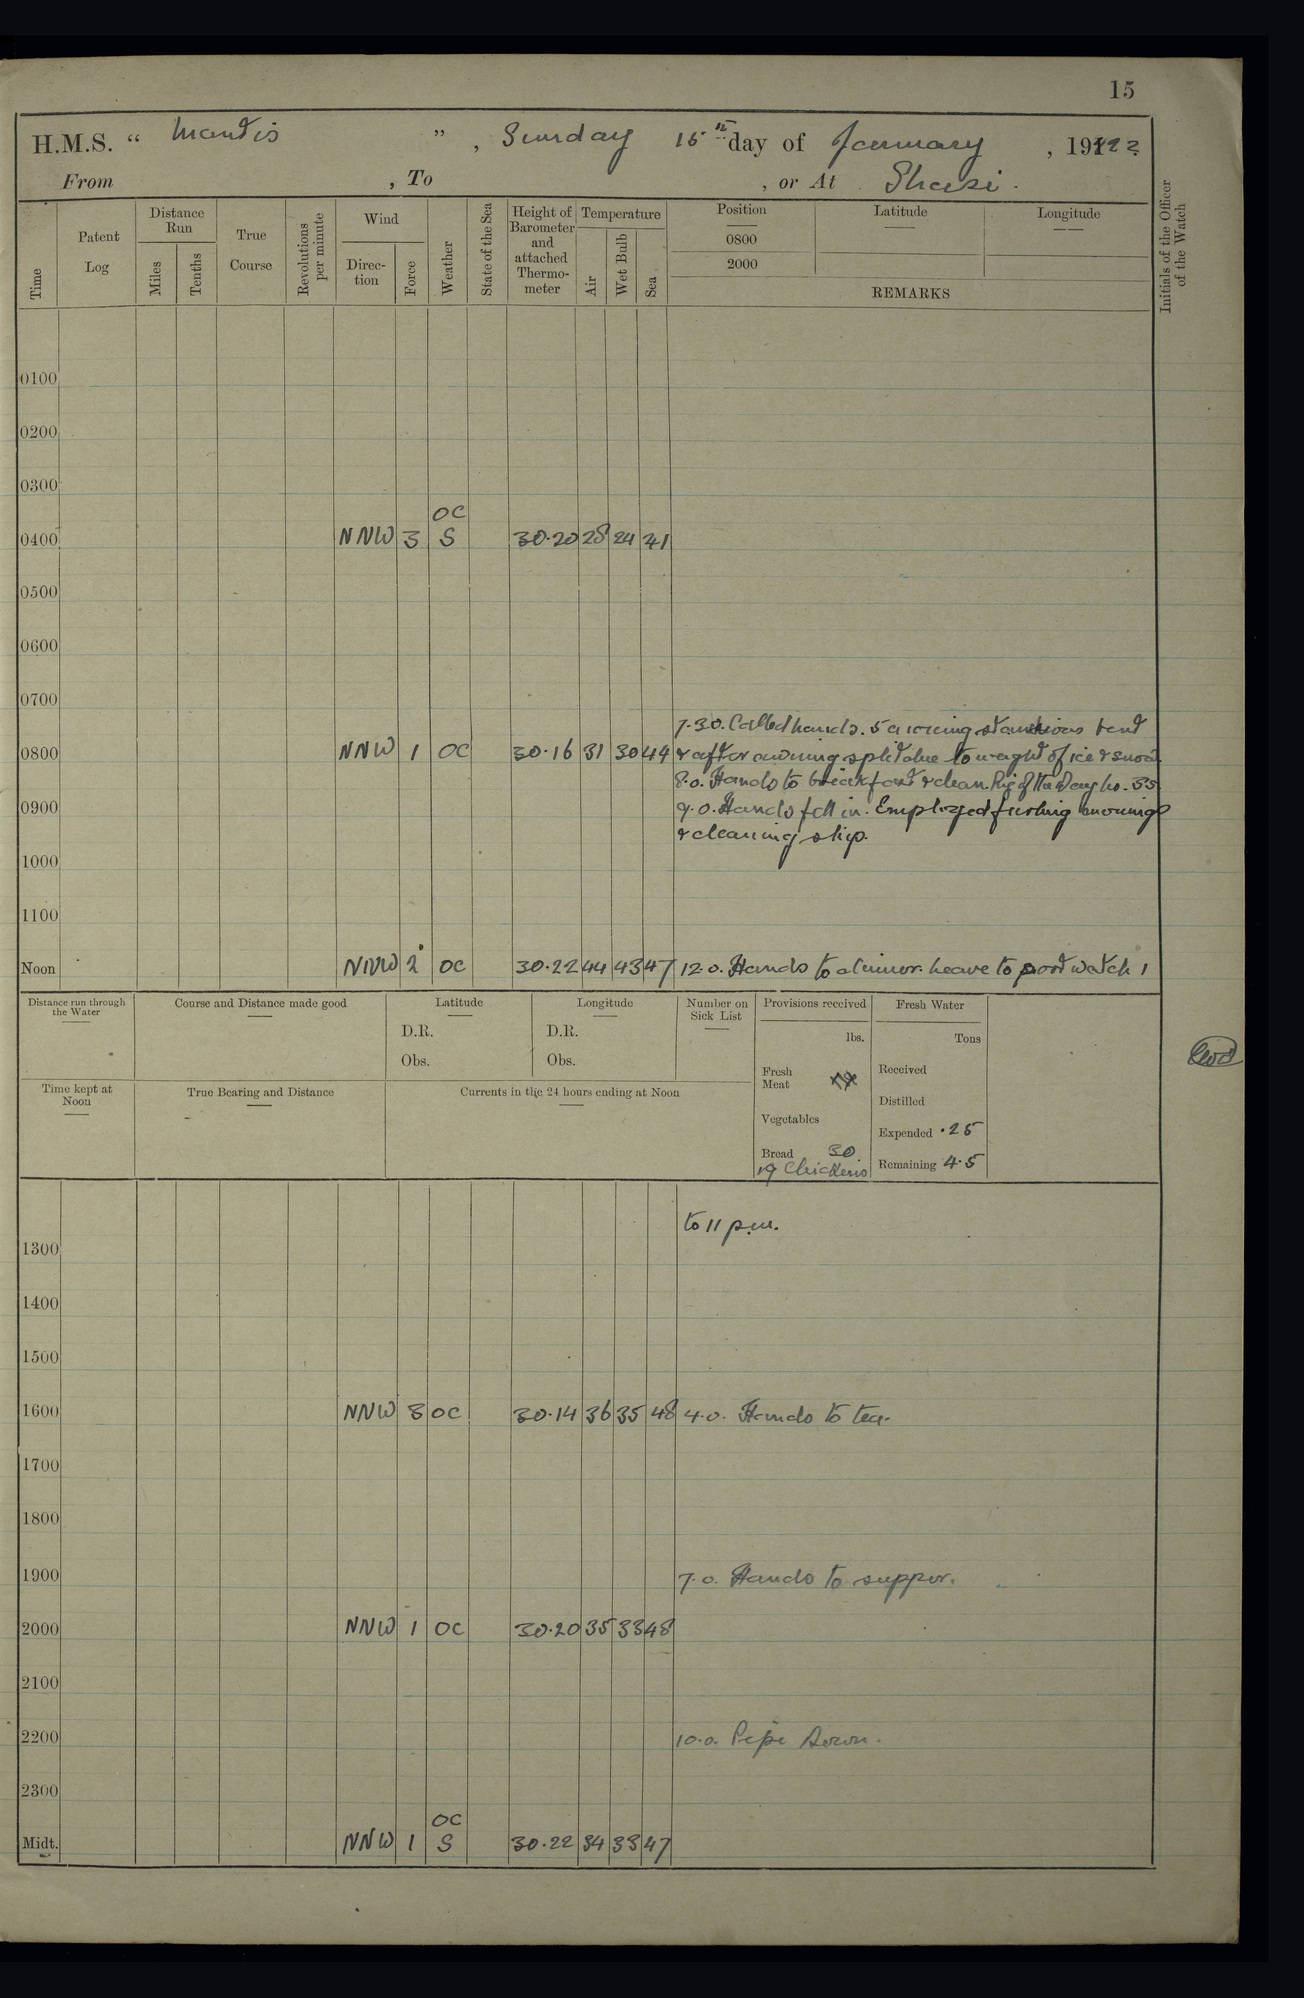 15
H.M.S. “ Mantis ” , Sunday 15th day of January , 1922
From , To , or At Shasi.
Time
Patent Log
Distance Run
Miles
Tenths
True Course
Revolutions per minute
Wind
Direc-tion
Force
Weather
State of the Sea
Height of Barometer and attached Thermo-meter
Temperature
Air
Wet Bulb
Sea
Position
0800
2000
Latitude
Longitude
REMARKS
Initials of the Officer of the Watch
0100
0200
0300
OC
0400 NNW 3 S 30.20 28 24 41
0500
0600
0700
7.30. Called hands. 5 awning stanchions bent
0800 NNW 1 OC 30.16 31 30 44 & after awning split due to weight of ice & snow.
8.0. Hands to breakfast & clean. Rig of the Day No. 35
0900 9.0. Hands fell in. Employed furling awnings
& cleaning ship.
1000
1100
Noon NNW 2 OC 30.22 44 43 47 12.0. Hands to dinner. leave to port watch 1
Distance run through the Water
Course and Distance made good
Latitude
D.R.
Obs.
Longitude
D.R.
Obs.
Number on Sick List
Provisions received
lbs.
Fresh Meat
Vegetables
Bread 30
19 Chickens
Fresh Water
Tons
Received
Distilled
Expended .25
Remaining 4.5
Time kept at Noon
True Bearing and Distance
Currents in the 24 hours ending at Noon
to 11 p.m.
1300
1400
1500
1600 NNW 3 OC 30.14 36 35 48 4.0. Hands to tea.
1700
1800
1900 7.0. Hands to supper.
2000 NNW 1 OC 30.20 35 33 48
2100
2200 10.0. Pipe Down.
2300
OC
Midt. NNW 1 S 30.22 34 33 47